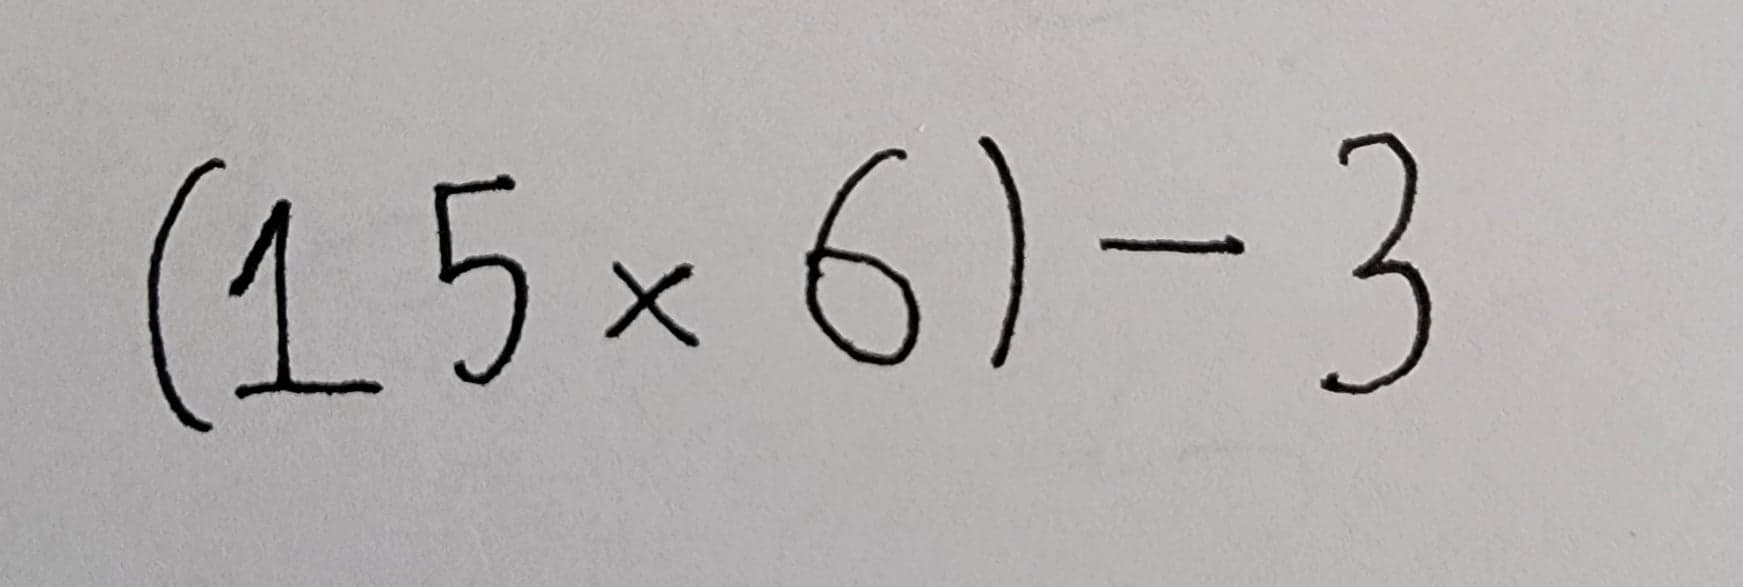 (15 × 6) - 3